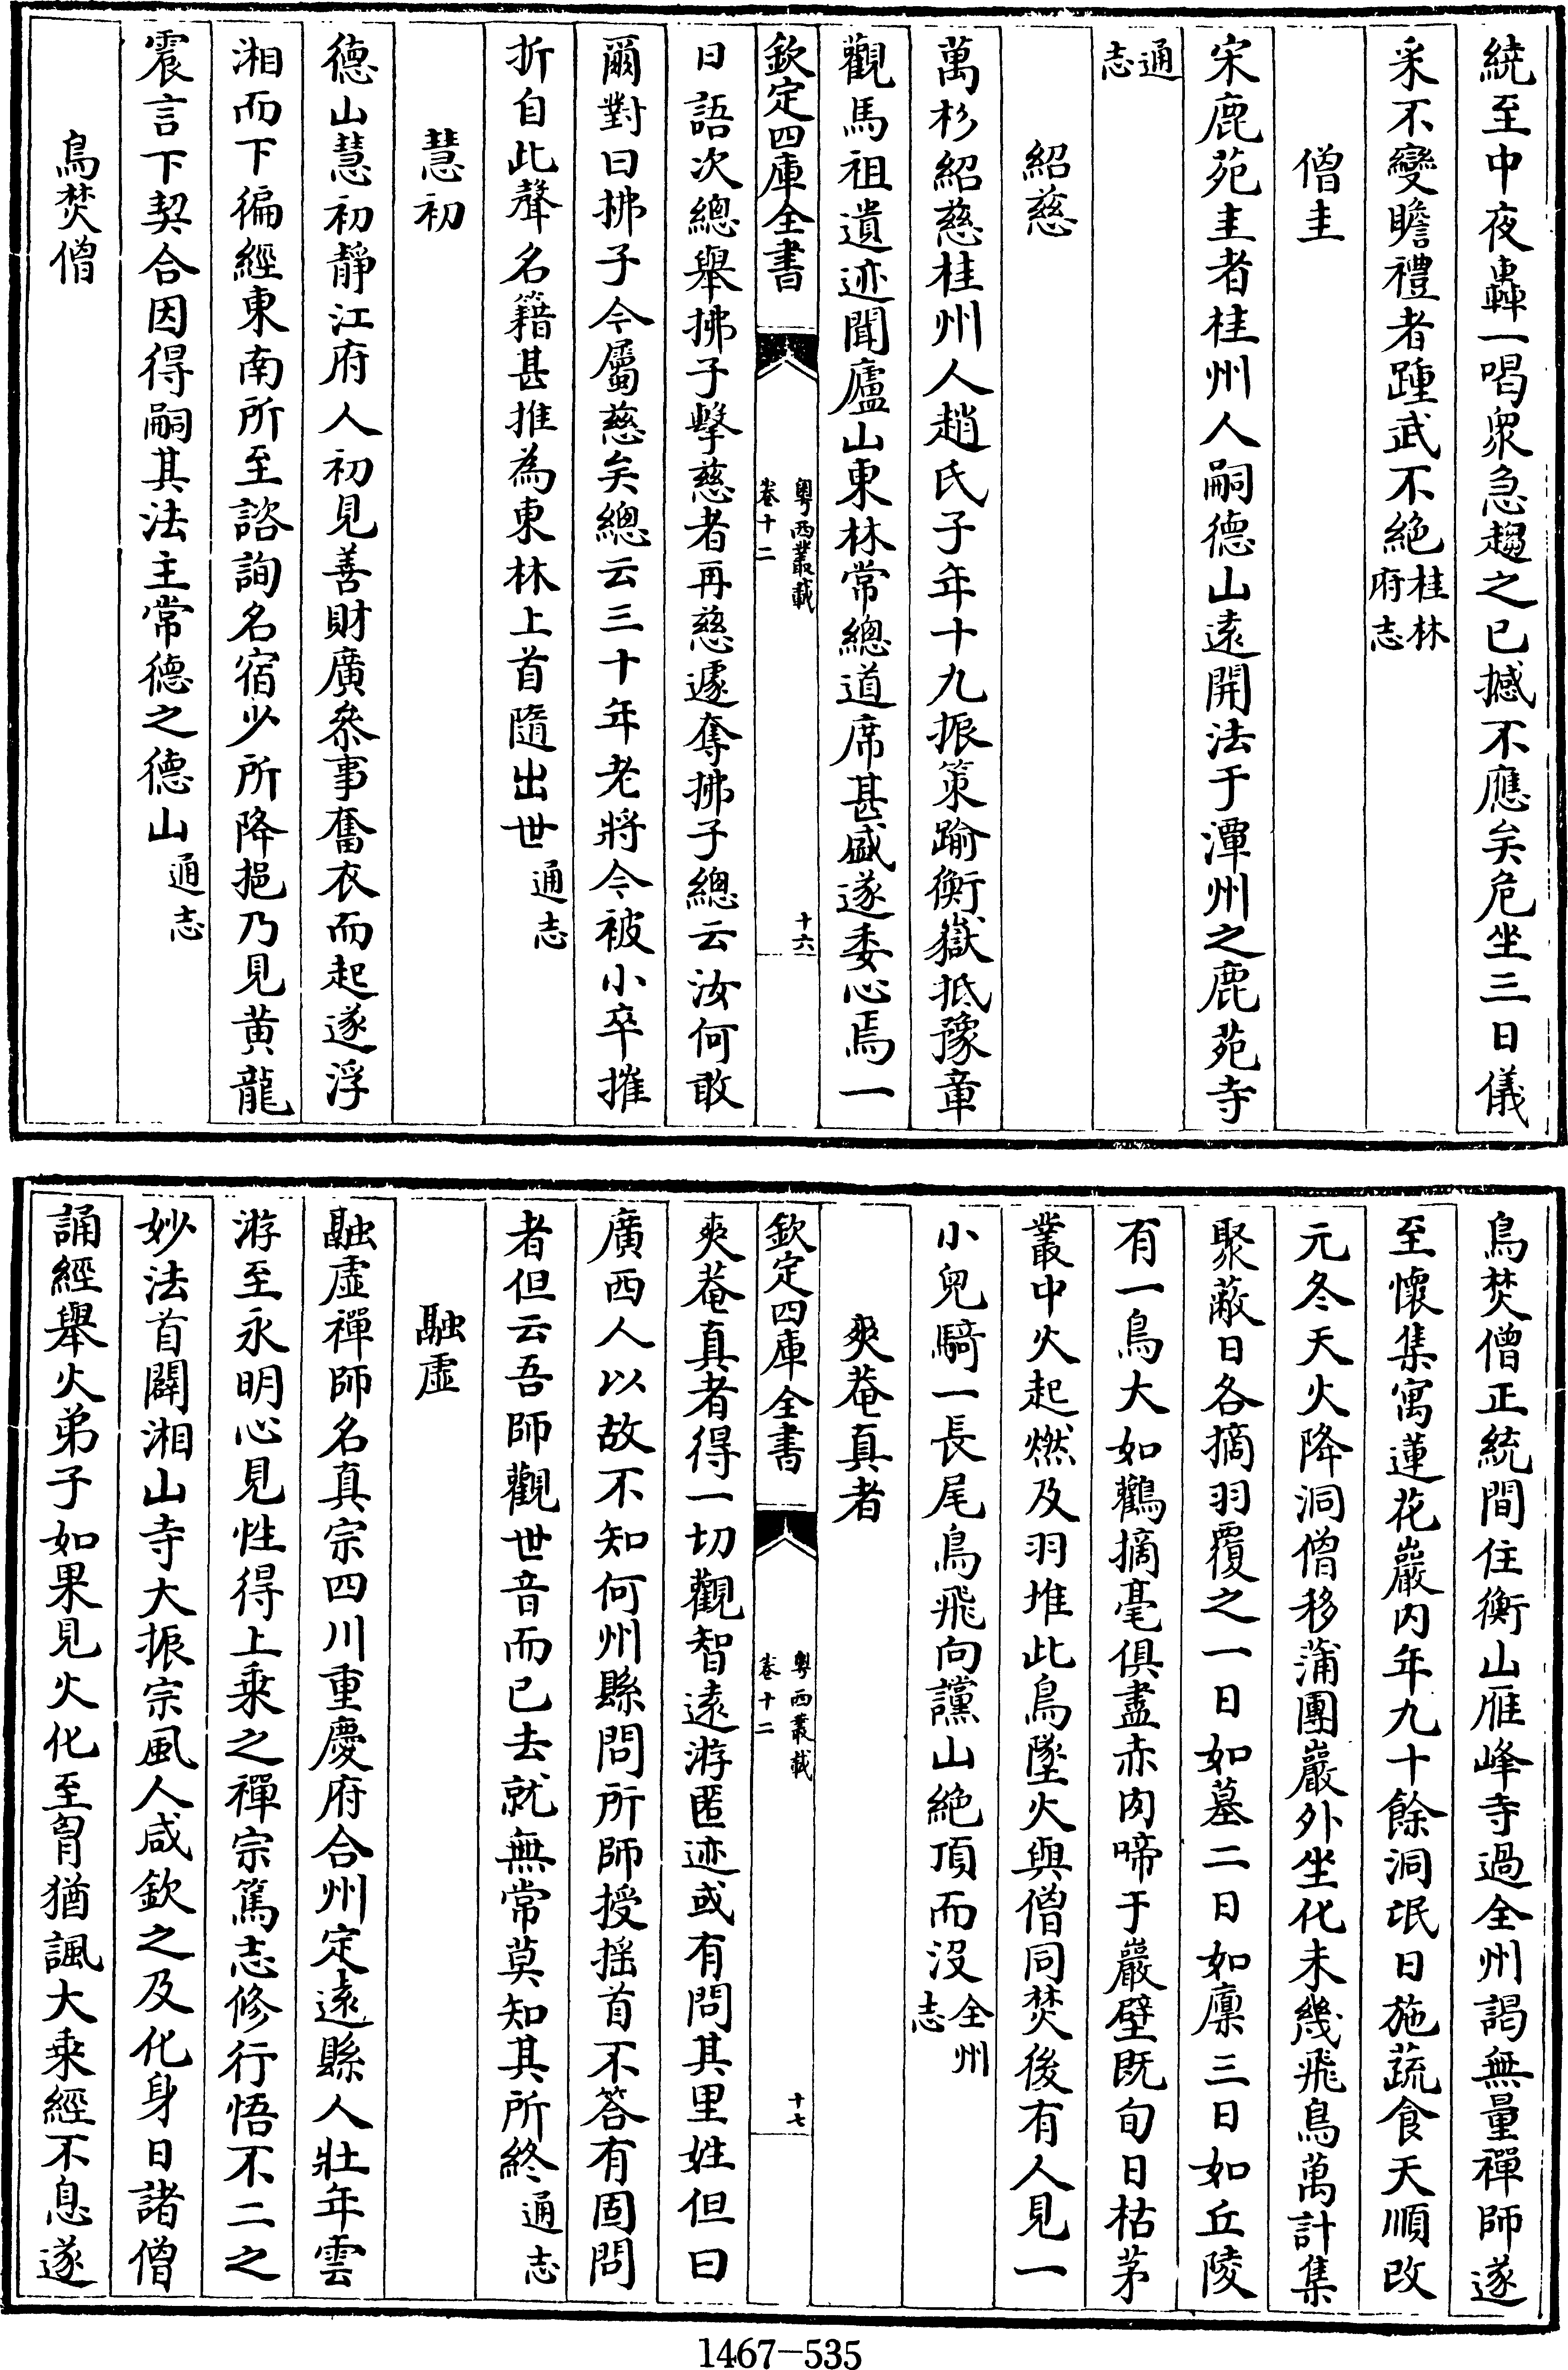 繞至中夜轟一喝衆急趨之已撼不應矣危坐三日儀
采不變瞻禮者踵武不絶桂林府志
僧圭
宋鹿苑圭者桂州人嗣德山遠開法于潭州之鹿苑寺
通志
紹慈
萬杉紹慈桂州人趙氏子年十九振策踰衡嶽抵豫章
觀馬祖遺迹聞廬山東林常總道席甚盛遂委心焉一
欽定四庫全書
粤西叢載
卷十二
十六
日語次總舉拂子擊慈者再慈遽奪拂子總云汝何敢
爾對曰拂子今屬慈矣總云三十年老將今被小卒摧
折自此聲名籍甚推為東林上首隨出世通志
慧初
德山慧初靜江府人初見善財廣叅事奮衣而起遂浮
湘而下徧經東南所至諮詢名宿少所降挹乃見黄龍
震言下契合因得嗣其法主常德之德山通志
鳥焚僧
鳥焚僧正統間住衡山雁峰寺過全州謁無量禪師遂
至懷集寓蓮花巖内年九十餘洞氓日施蔬食天順改
元冬天火降洞僧移蒲團巖外坐化未幾飛鳥萬計集
聚蔽日各摘羽覆之一日如墓二日如廪三日如丘陵
有一鳥大如鸛摘毫俱盡赤肉啼于巖壁既旬日枯茅
叢中火起燃及羽堆此鳥墜火與僧同焚後有人見一
小兒騎一長尾鳥飛向讜山絶頂而沒全州志
爽菴真者
欽定四庫全書
粤西叢載
卷十二
十七
爽菴真者得一切觀智遠游匿迹或有問其里姓但曰
廣西人以故不知何州縣問所師授揺首不答有固問
者但云吾師觀世音而已去就無常莫知其所終通志
融虛
融虛禪師名真宗四川重慶府合州定遠縣人壯年雲
游至永明心見性得上乗之禪宗篤志修行悟不二之
妙法首闢湘山寺大振宗風人咸欽之及化身日諸僧
誦經舉火弟子如果見火化至胷猶諷大乗經不息遂
1467-535